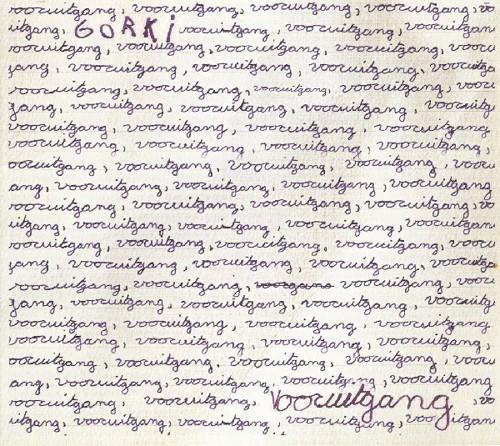 ooruitgang, vooruitgang, vooruitgang, vooruitgang, vo
uitgang, GORKi vooruitgang, vooruitgang, vooruitgan
ooruitgang, vooruitgang, vooruitgang, vooruitgang, vooru
gang, vooruitgang, vooruitgang, vooruitgang, vooruitg
ooruitgang, vooruitgang, vooruitgang, vooruitgang, voorui
gang, vooruitgang, vooruitgang, vooruitgang, vooruitg
vooruitgang, vooruitgang, vooruitgang, vooruitgang
vooruitgang, vooruitgang, vooruitgang, vooruitgang,
ooruitgang, vooruitgang, vooruitgang, vooruitgang, vooru
ang, vooruitgang, vooruitgang, vooruitgang, vooruitgang
ooruitgang, vooruitgang, vooruitgang, vooruitgang, vo
uitgang, vooruitgang, vooruitgang, vooruitgang, vooruitgan
ooruitgang, vooruitgang, vooruitgang, vooruitgang, vooru
gang, vooruitgang, vooruitgang, vooruitgang, vooruitg
ooruitgang, vooruitgang, vooruitgang, vooruitgang, voorui
gang, vooruitgang, vooruitgang, vooruitgang, vooruitg
vooruitgang, vooruitgang, vooruitgang, vooruitgang
vooruitgang, vooruitgang, vooruitgang, vooruitgang,
ooruitgang, vooruitgang, vooruitgang, vooruitgang, vooru
ang, vooruitgang, vooruitgang, vooruitgang, vooruitgang
ooruitgang, vooruitgang, vooruitgang, Vooruitgang, vo
uitgang, vooruitgang, vooruitgang, vooruitgang, vooruitgan